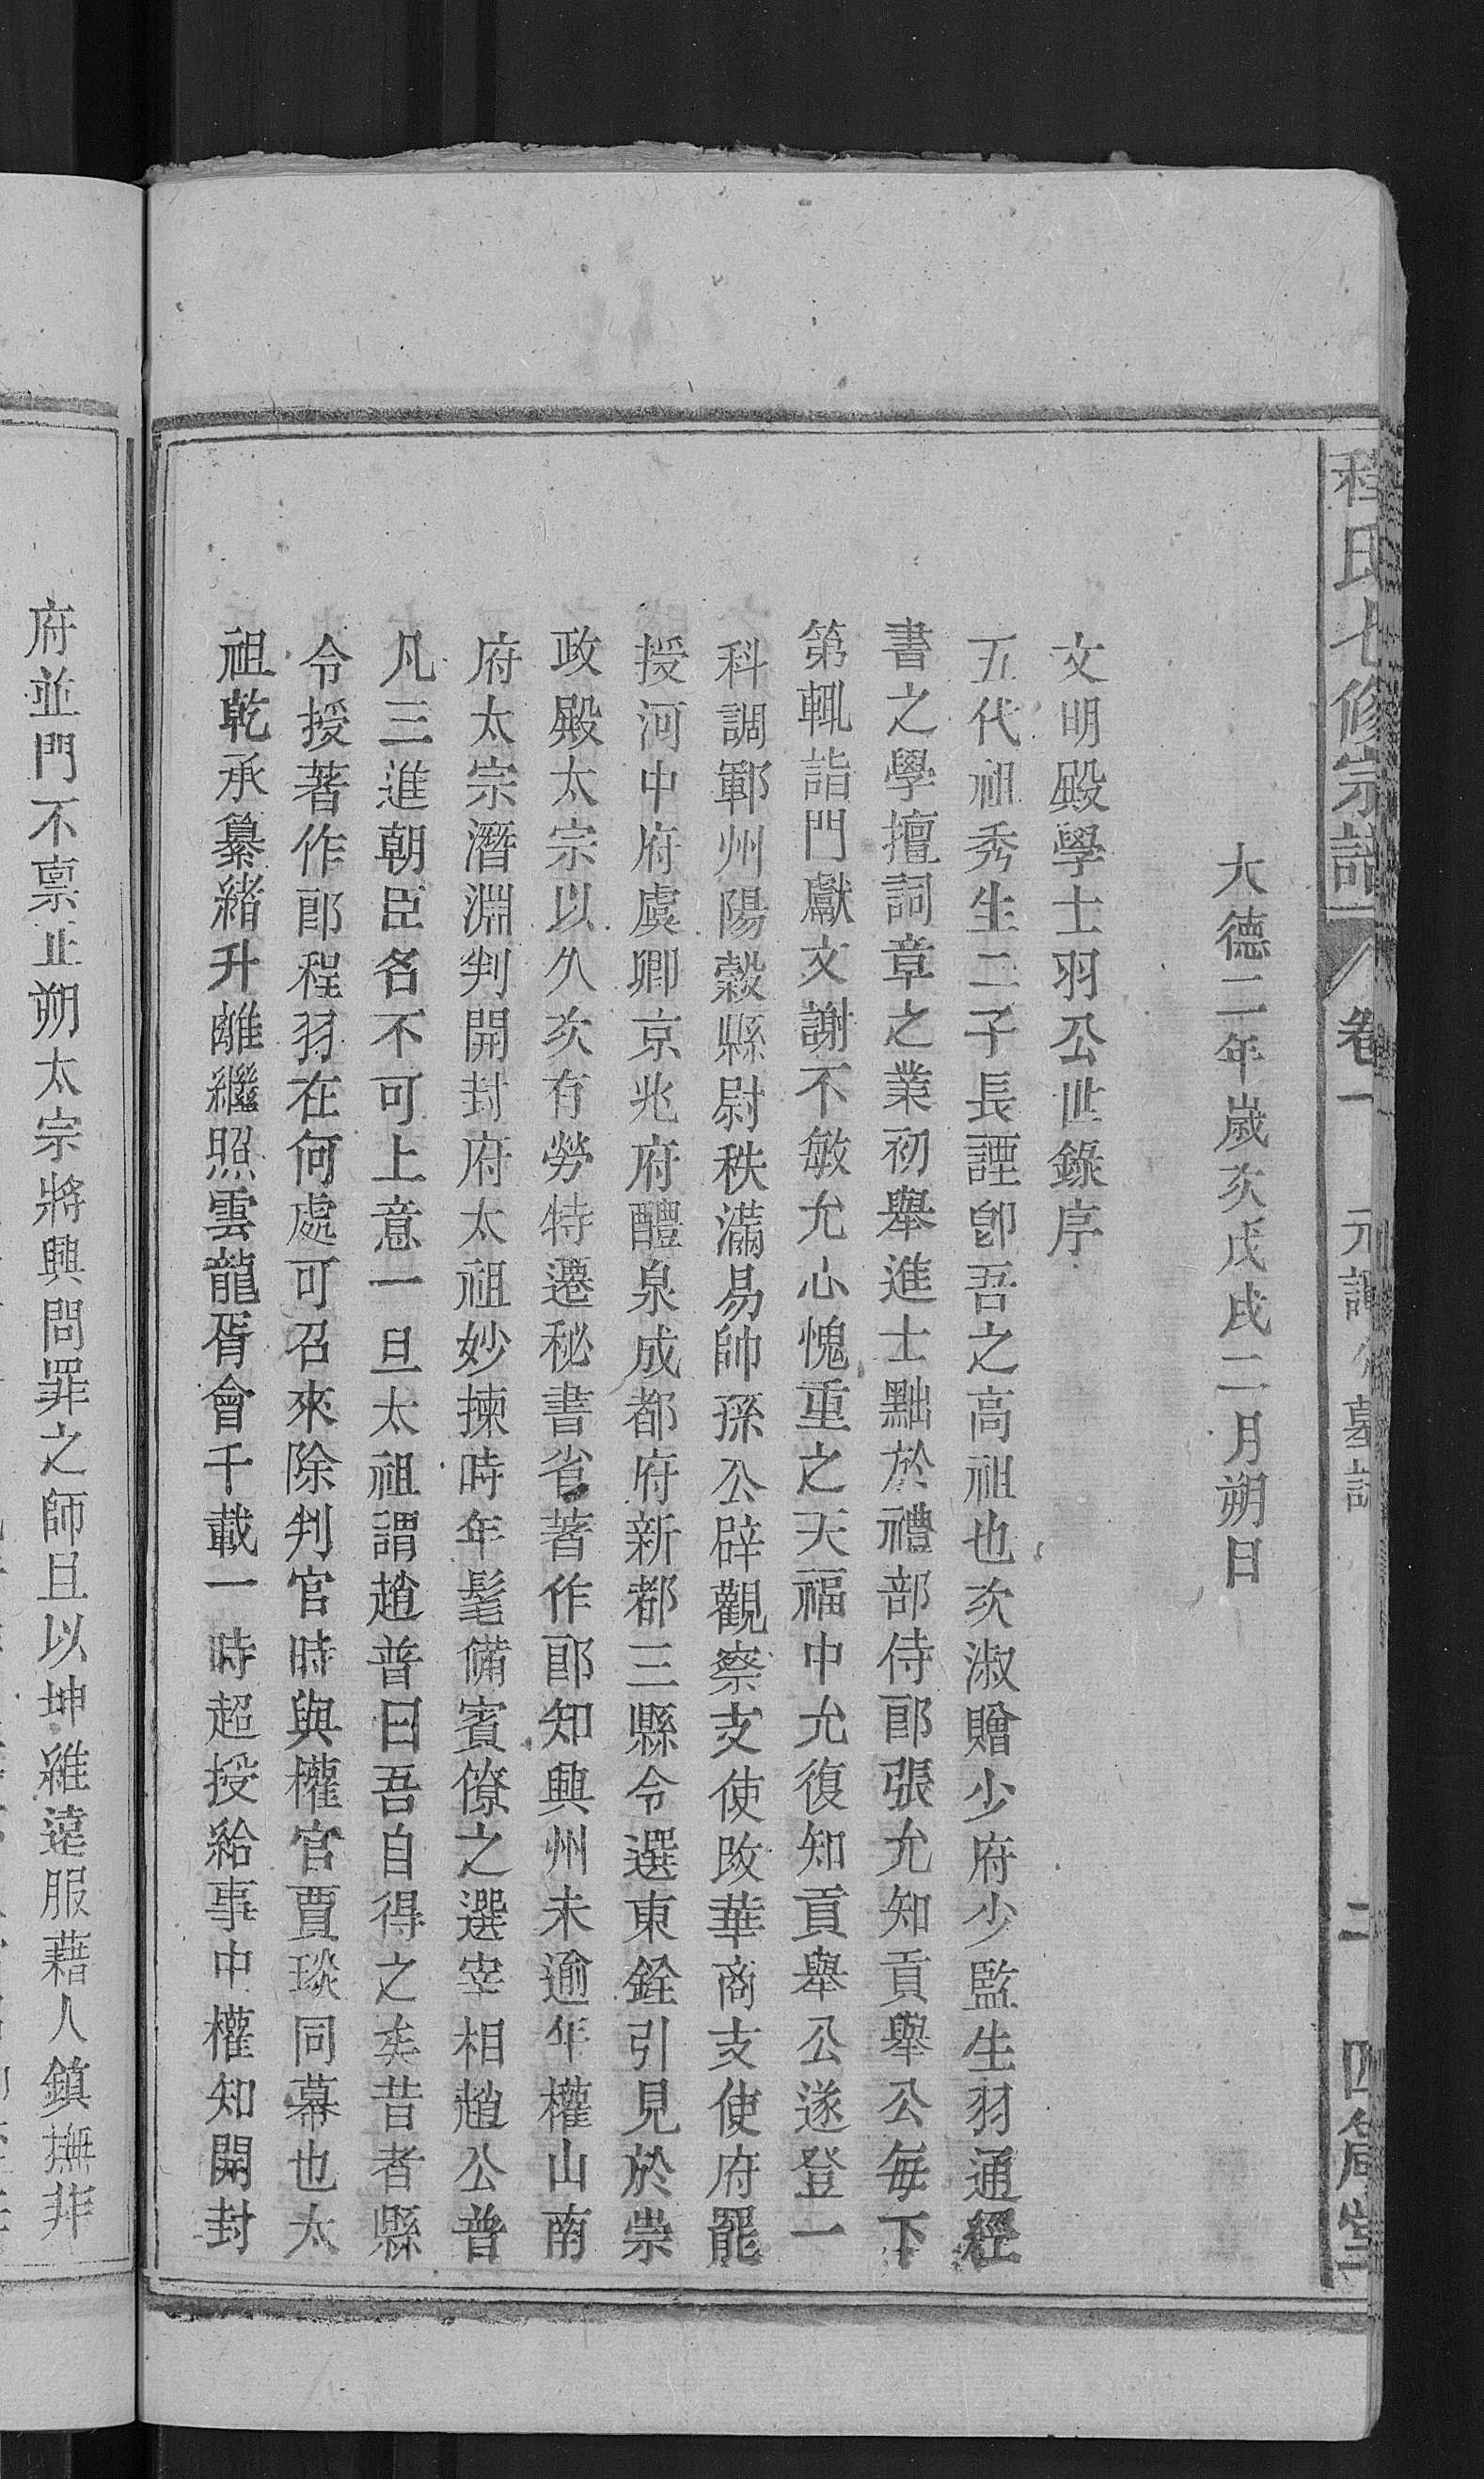 程氏七修宗譜
卷一
元譚公墓誌
二
四箴堂
大德二年歲次戊戌二月朔日
文明殿學士羽公世錄序
五代祖秀生二子長諲卽吾之高祖也次淑贈少府少監生羽通經
書之學擅詞章之業初舉進士黜於禮部侍郎張允知貢舉公每下
第輒詣門獻文謝不敏允心愧重之天福中允復知貢舉公遂登一
科調鄆州陽穀縣尉秩滿易帥孫公辟觀察支使改華商支使府罷
授河中府虞卿京兆府醴泉成都府新都三縣令選東銓引見於崇
政殿太宗以久次有勞特遷秘書省著作郎知興州未逾年權山南
府太宗潛淵判開封府太祖妙揀時年髦備賓僚之選宰相趙公普
凡三進朝臣名不可上意一旦太祖謂趙普曰吾自得之矣昔者縣
令授著作郎程羽在何處可召來除判官時與權官賈琰同幕也太
祖乾承纂緒升離繼照雲龍胥會千載一時超授給事中權知開封
府並門不稟正朔太宗將興問罪之師且以坤維遠服藉人鎮撫非